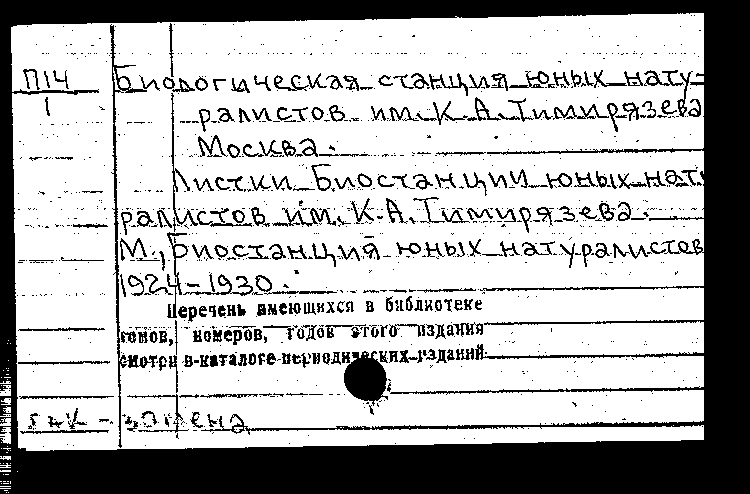 П14
1
Биологическая станция юных нату-
ралистов им. К. А. Тимирязева
Москва.
Листки Биостанции юных нату
ралистов им. К. А. Тимирязева.
М., Биостанция юных натуралистов
1924-1930.
Перечень имеющихся в библиотеке
томов, номеров, годов этого издания
смотри в каталоге периодических изданий